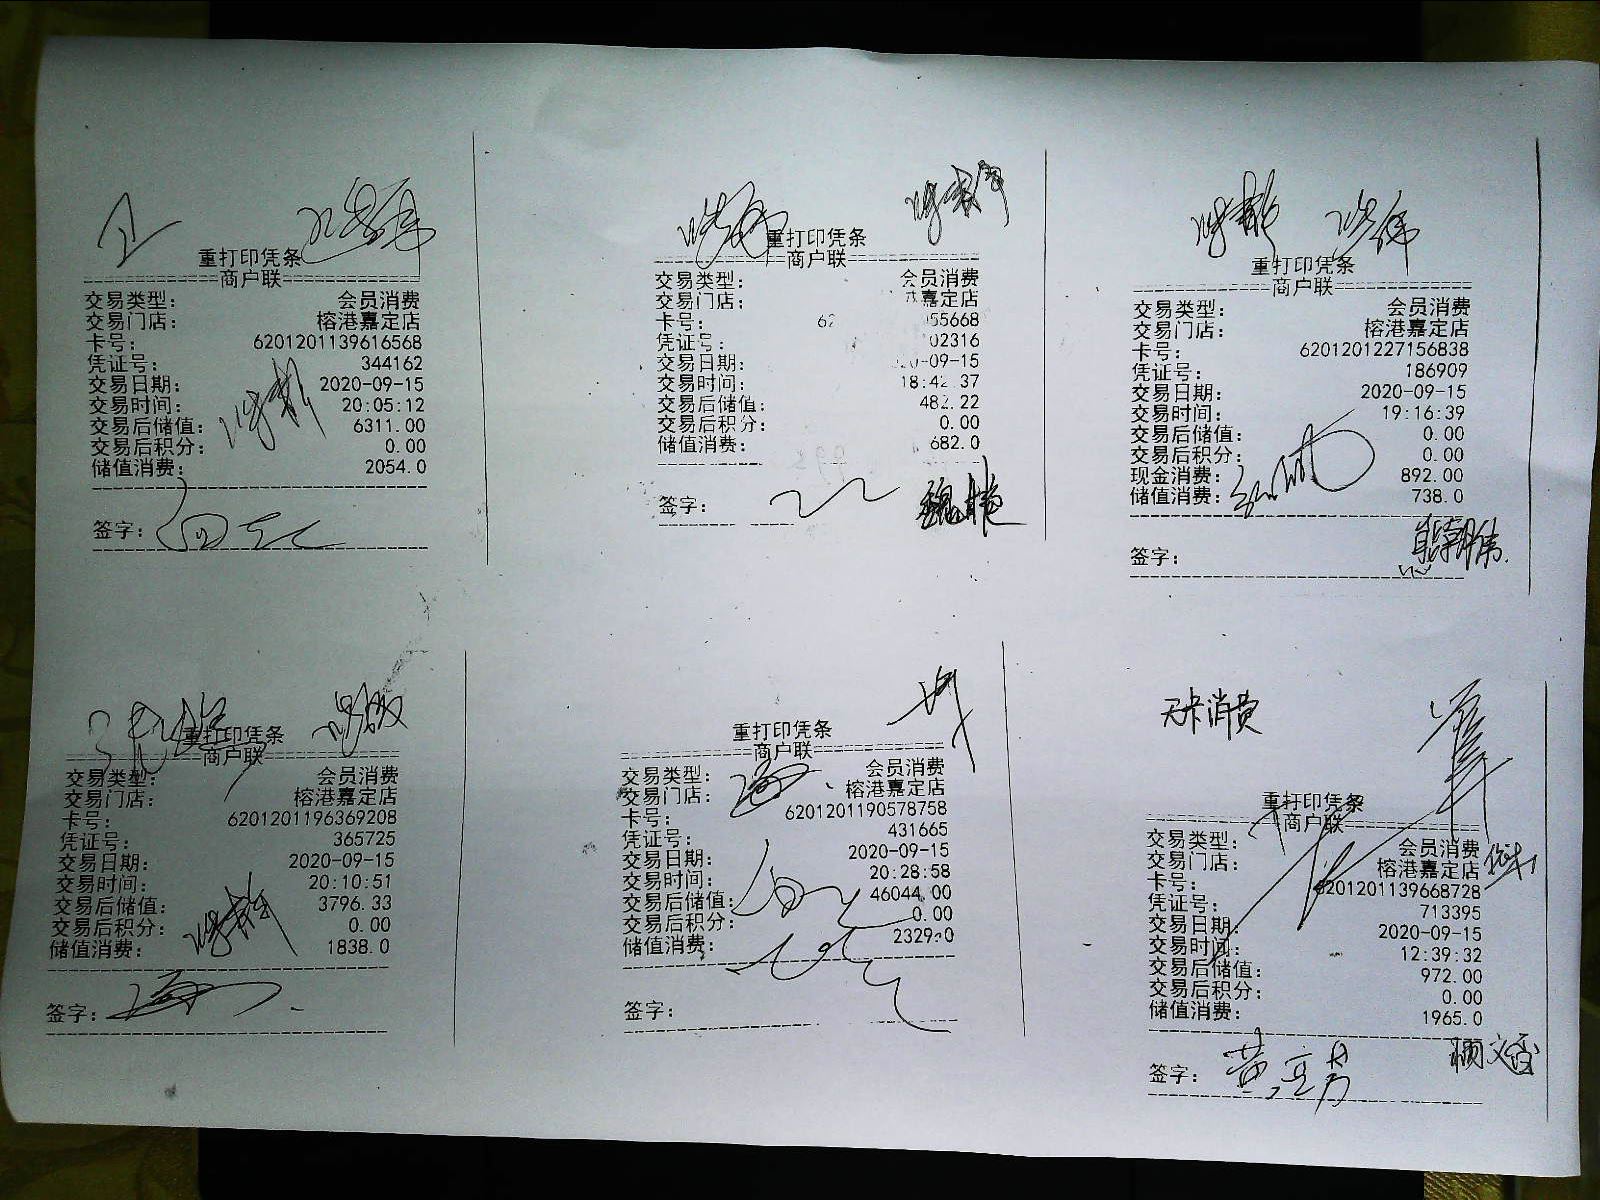 重打印凭条
商户联
交易类型： 会员消费
交易门店： 榕港嘉定店
卡号： 6201201139616568
凭证号： 344162
交易日期： 2020-09-15
交易时间： 20:05:12
交易后储值： 6311.00
交易后积分： 0.00
储值消费： 2054.0
签字：
重打印凭条
商户联
交易类型： 会员消费
交易门店： 嘉定店
卡号： 62 55668
凭证号： 02316
交易日期： 09-15
交易时间： 18:42:37
交易后储值： 482.22
交易后积分： 0.00
储值消费： 682.0
签字：
重打印凭条
商户联
交易类型： 会员消费
交易门店： 榕港嘉定店
卡号： 6201201227156838
凭证号： 186909
交易日期： 2020-09-15
交易时间： 19:16:39
交易后储值： 0.00
交易后积分： 0.00
现金消费： 892.00
储值消费： 738.0
熊朝伟
签字：
重打印凭条
商户联
交易类型： 会员消费
交易门店： 榕港嘉定店
卡号： 6201201196369208
凭证号： 365725
交易日期： 2020-09-15
交易时间： 20:10:51
交易后储值： 3796.33
交易后积分： 0.00
储值消费： 1838.0
签字：
重打印凭条
商户联
交易类型： 会员消费
交易门店： 榕港嘉定店
卡号： 6201201190578758
凭证号： 431665
交易日期： 2020-09-15
交易时间： 20:28:58
交易后储值： 46044.00
交易后积分： 0.00
储值消费： 2329.0
签字：
无卡消费
重打印凭条
商户联
交易类型： 会员消费
交易门店： 榕港嘉定店
卡号： 6201201139668728
凭证号： 713395
交易日期： 2020-09-15
交易时间： 12:39:32
交易后储值： 972.00
交易后积分： 0.00
储值消费： 1965.0
签字：